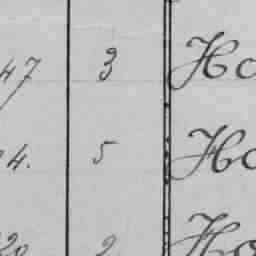 47 3 Ho
4. 5 Ho
20 2 Ho